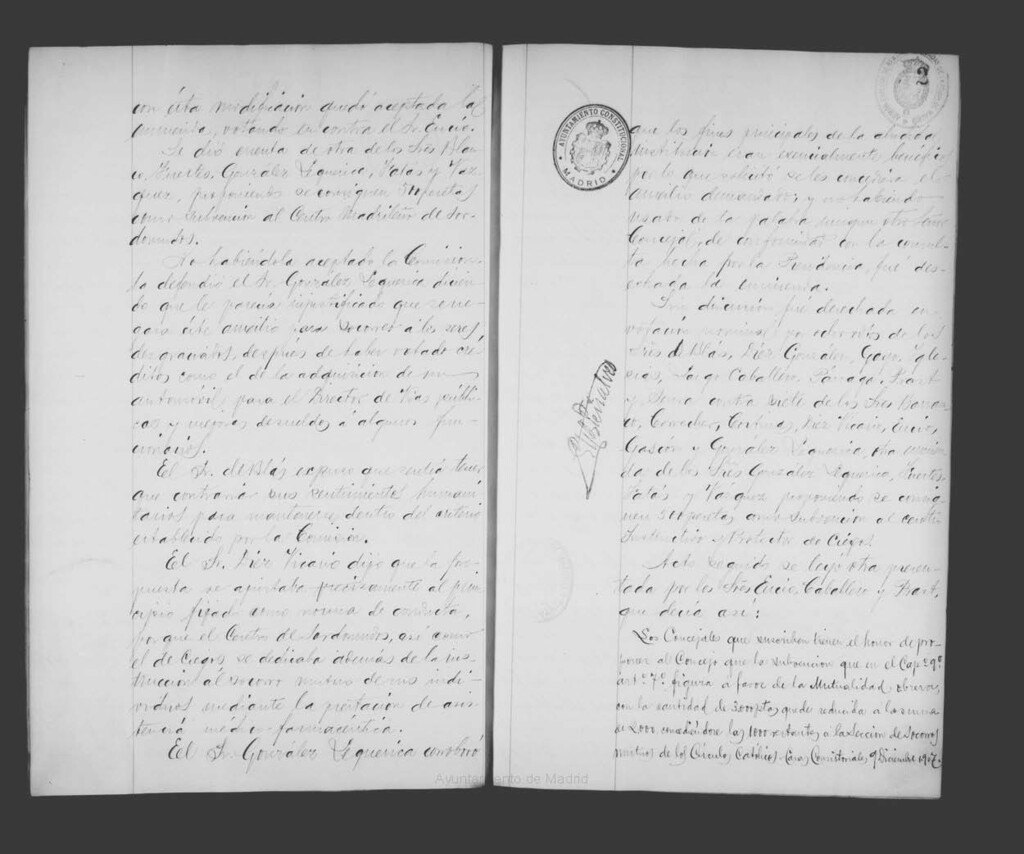 con ésta modificacion quedó aceptada la
enmienda, votando en contra el Sr. Encio.
Se dió cuenta de otra de los Sres Blan-
co, Fuertes, González Izquierdo, Salas y Váz-
quez, proponiendo se consignen 500 pesetas
como subvencion al Centro Madrileño de Sor-
domudos.
No habiéndola aceptado la Comision
la defendió el Sr. González diciendo
do que le parecia injustificado que se ne-
gara éste auxilio para socorrer á los seres
desgraciados, después de haber votado cré-
ditos como el de la adquisicion de un
automóvil para el Director de Vías públi-
cas y mejoras de sueldos á algunos fun-
cionarios.
El Sr. de Blás expuso que sentia tener
que contrariar sus sentimientos humani-
tarios para mantenerse dentro del criterio
establecido por la Comision.
El Sr. Díez Vicario dijo que la pro-
puesta se ajustaba precisamente al prin-
cipio fijado como norma de conducta,
porque el Centro de Sordomudos, así como
el de Ciegos se dedicaba además de la ins-
truccion al socorro mutuo de sus indi-
viduos mediante la prestacion de asis-
tencia médico-farmacéutica.
El Sr. González corroboró
2
AYUNTAMIENTO CONSTITUCIONAL
MADRID
que los fines principales de la aludida
institucion eran esencialmente benéficos
por lo que solicitó se les concediera el
auxilio demandado; y no habiendo
usado de la palabra ningun otro Señor
Concejal, de conformidad con la consul-
ta hecha por la Presidencia, fué des-
echada la enmienda.
Sin discusion fué desechada en
votacion nominal por ocho votos de los
Sres de Blás, Díez González, Gayo, Igle-
sias, Largo Caballero, Párraga, Prast
y Serra contra siete de los Sres
Corcher, Cortinas, Díez Vicario, Encio,
Gascón y González, otra enmien-
da de los Sres González, Fuertes,
Salas y Vázquez proponiendo se consig-
nen 500 pesetas como subvencion al Centro
Instructivo y Protector de Ciegos.
Acto seguido se leyó otra presen-
tada por los Sres Encio, Caballero y Prast,
que decia así:
Los Concejales que suscriben tienen el honor de pro-
poner al Concejo que la subvencion que en el Cap.º 9º
art.º 7º figura a favor de la Mutualidad obrera,
con la cantidad de 3.000 ptas quede reducida a la suma
de 2000 concediéndose las 1000 restantes a la Seccion de Socorros
mutuos de los Círculos Católicos. Casas Consistoriales 9 Diciembre 1907.
Ayuntamiento de Madrid